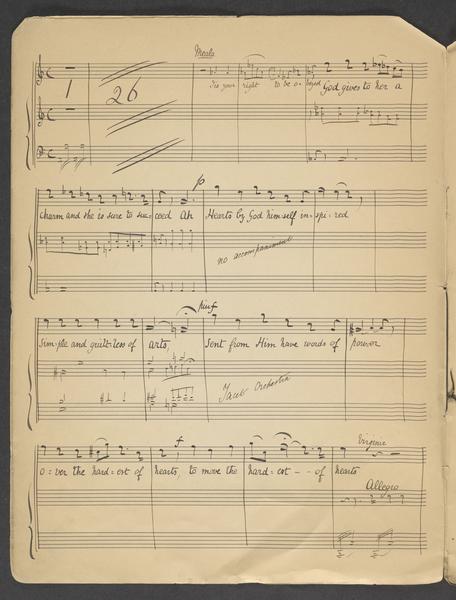 Meala
1 26 'Tis your right to be o-beyed God gives to her a
charm and she is sure to suc-ceed Ah Hearts by God him-self in-spi-red
p
no accompaniment
piu f
sim-ple and guilt-less of arts, Sent from Him have words of power
Tacet Orchestra
f Virginie
o-ver the hard-est of hearts, to move the hard-est -- of hearts
Allegro